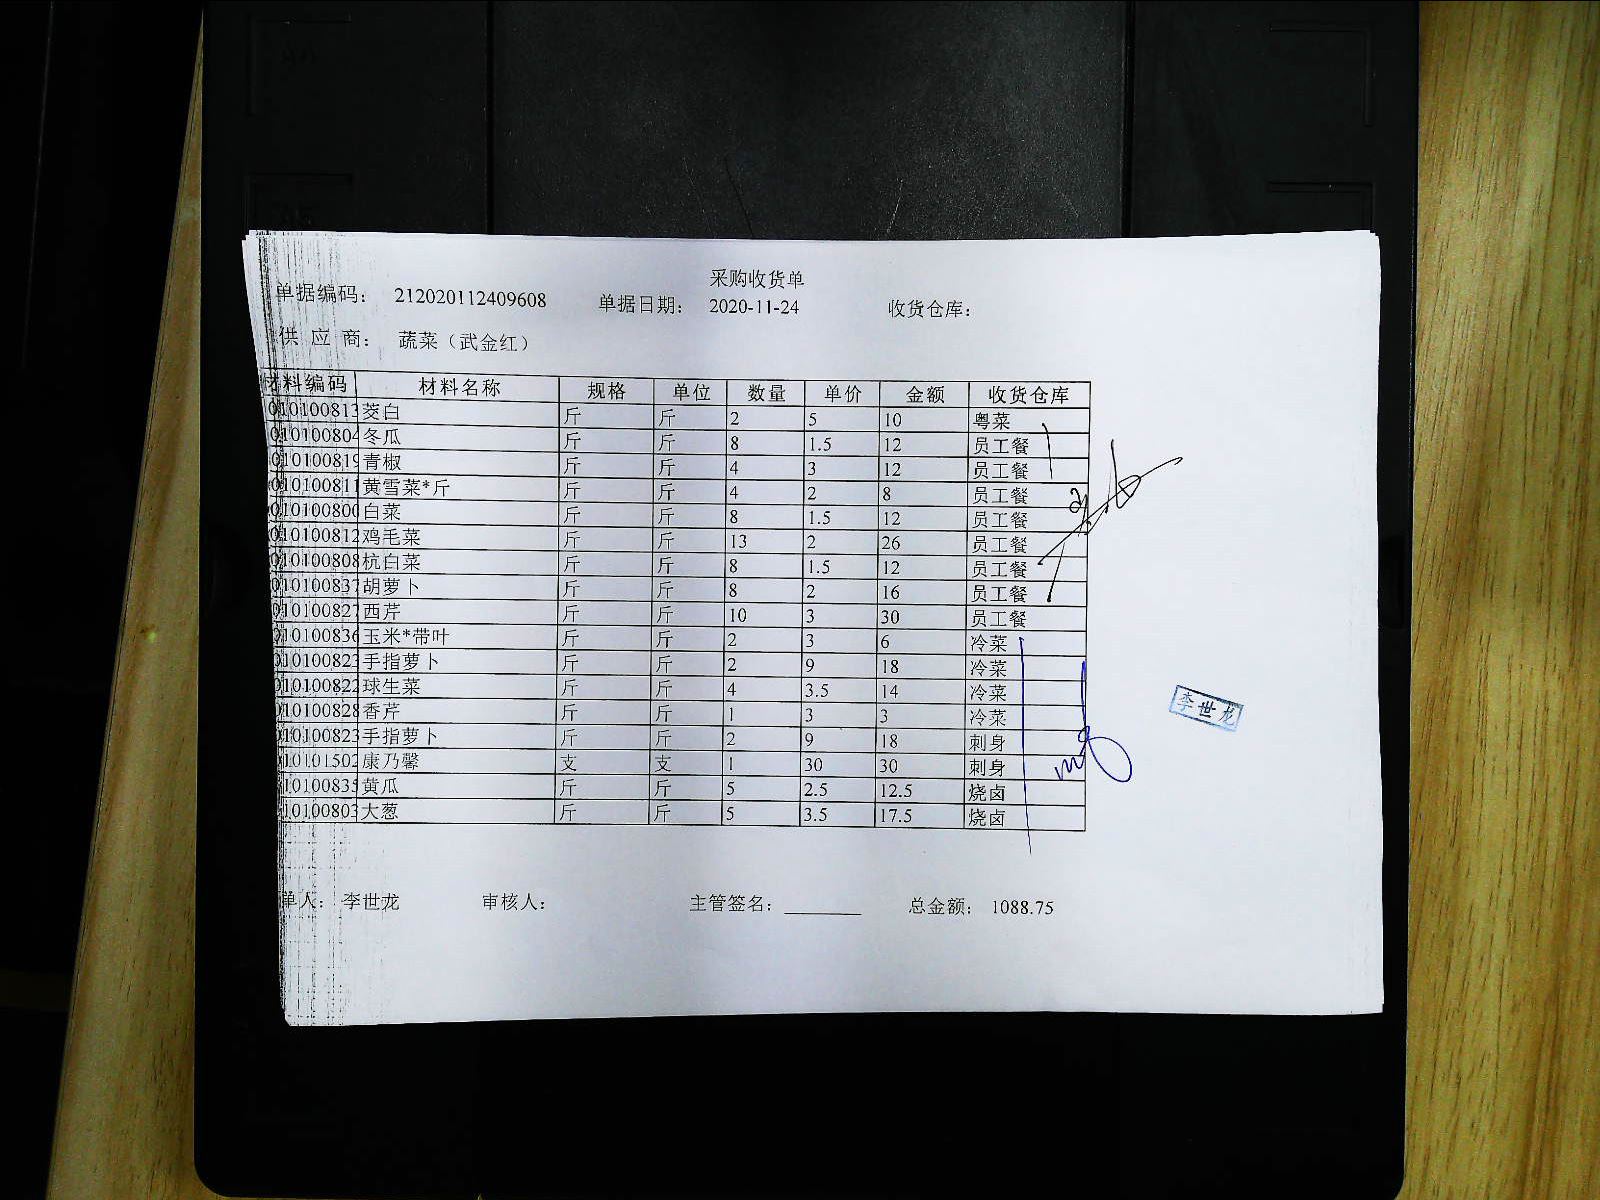 采购收货单
单据编码： 212020112409608 单据日期： 2020-11-24 收货仓库：
供 应 商： 蔬菜（武金红）
材料编码 材料名称 规格 单位 数量 单价 金额 收货仓库
010100813 茭白 斤 斤 2 5 10 粤菜
010100804 冬瓜 斤 斤 8 1.5 12 员工餐
010100819 青椒 斤 斤 4 3 12 员工餐
010100811 黄雪菜*斤 斤 斤 4 2 8 员工餐
010100800 白菜 斤 斤 8 1.5 12 员工餐
010100812 鸡毛菜 斤 斤 13 2 26 员工餐
010100808 杭白菜 斤 斤 8 1.5 12 员工餐
010100837 胡萝卜 斤 斤 8 2 16 员工餐
010100827 西芹 斤 斤 10 3 30 员工餐
010100836 玉米*带叶 斤 斤 2 3 6 冷菜
010100823 手指萝卜 斤 斤 2 9 18 冷菜
010100822 球生菜 斤 斤 4 3.5 14 冷菜
010100828 香芹 斤 斤 1 3 3 冷菜
010100823 手指萝卜 斤 斤 2 9 18 刺身
010101502 康乃馨 支 支 1 30 30 刺身
10100835 黄瓜 斤 斤 5 2.5 12.5 烧卤
10100803 大葱 斤 斤 5 3.5 17.5 烧卤
李世龙
单人： 李世龙 审核人： 主管签名： 总金额： 1088.75